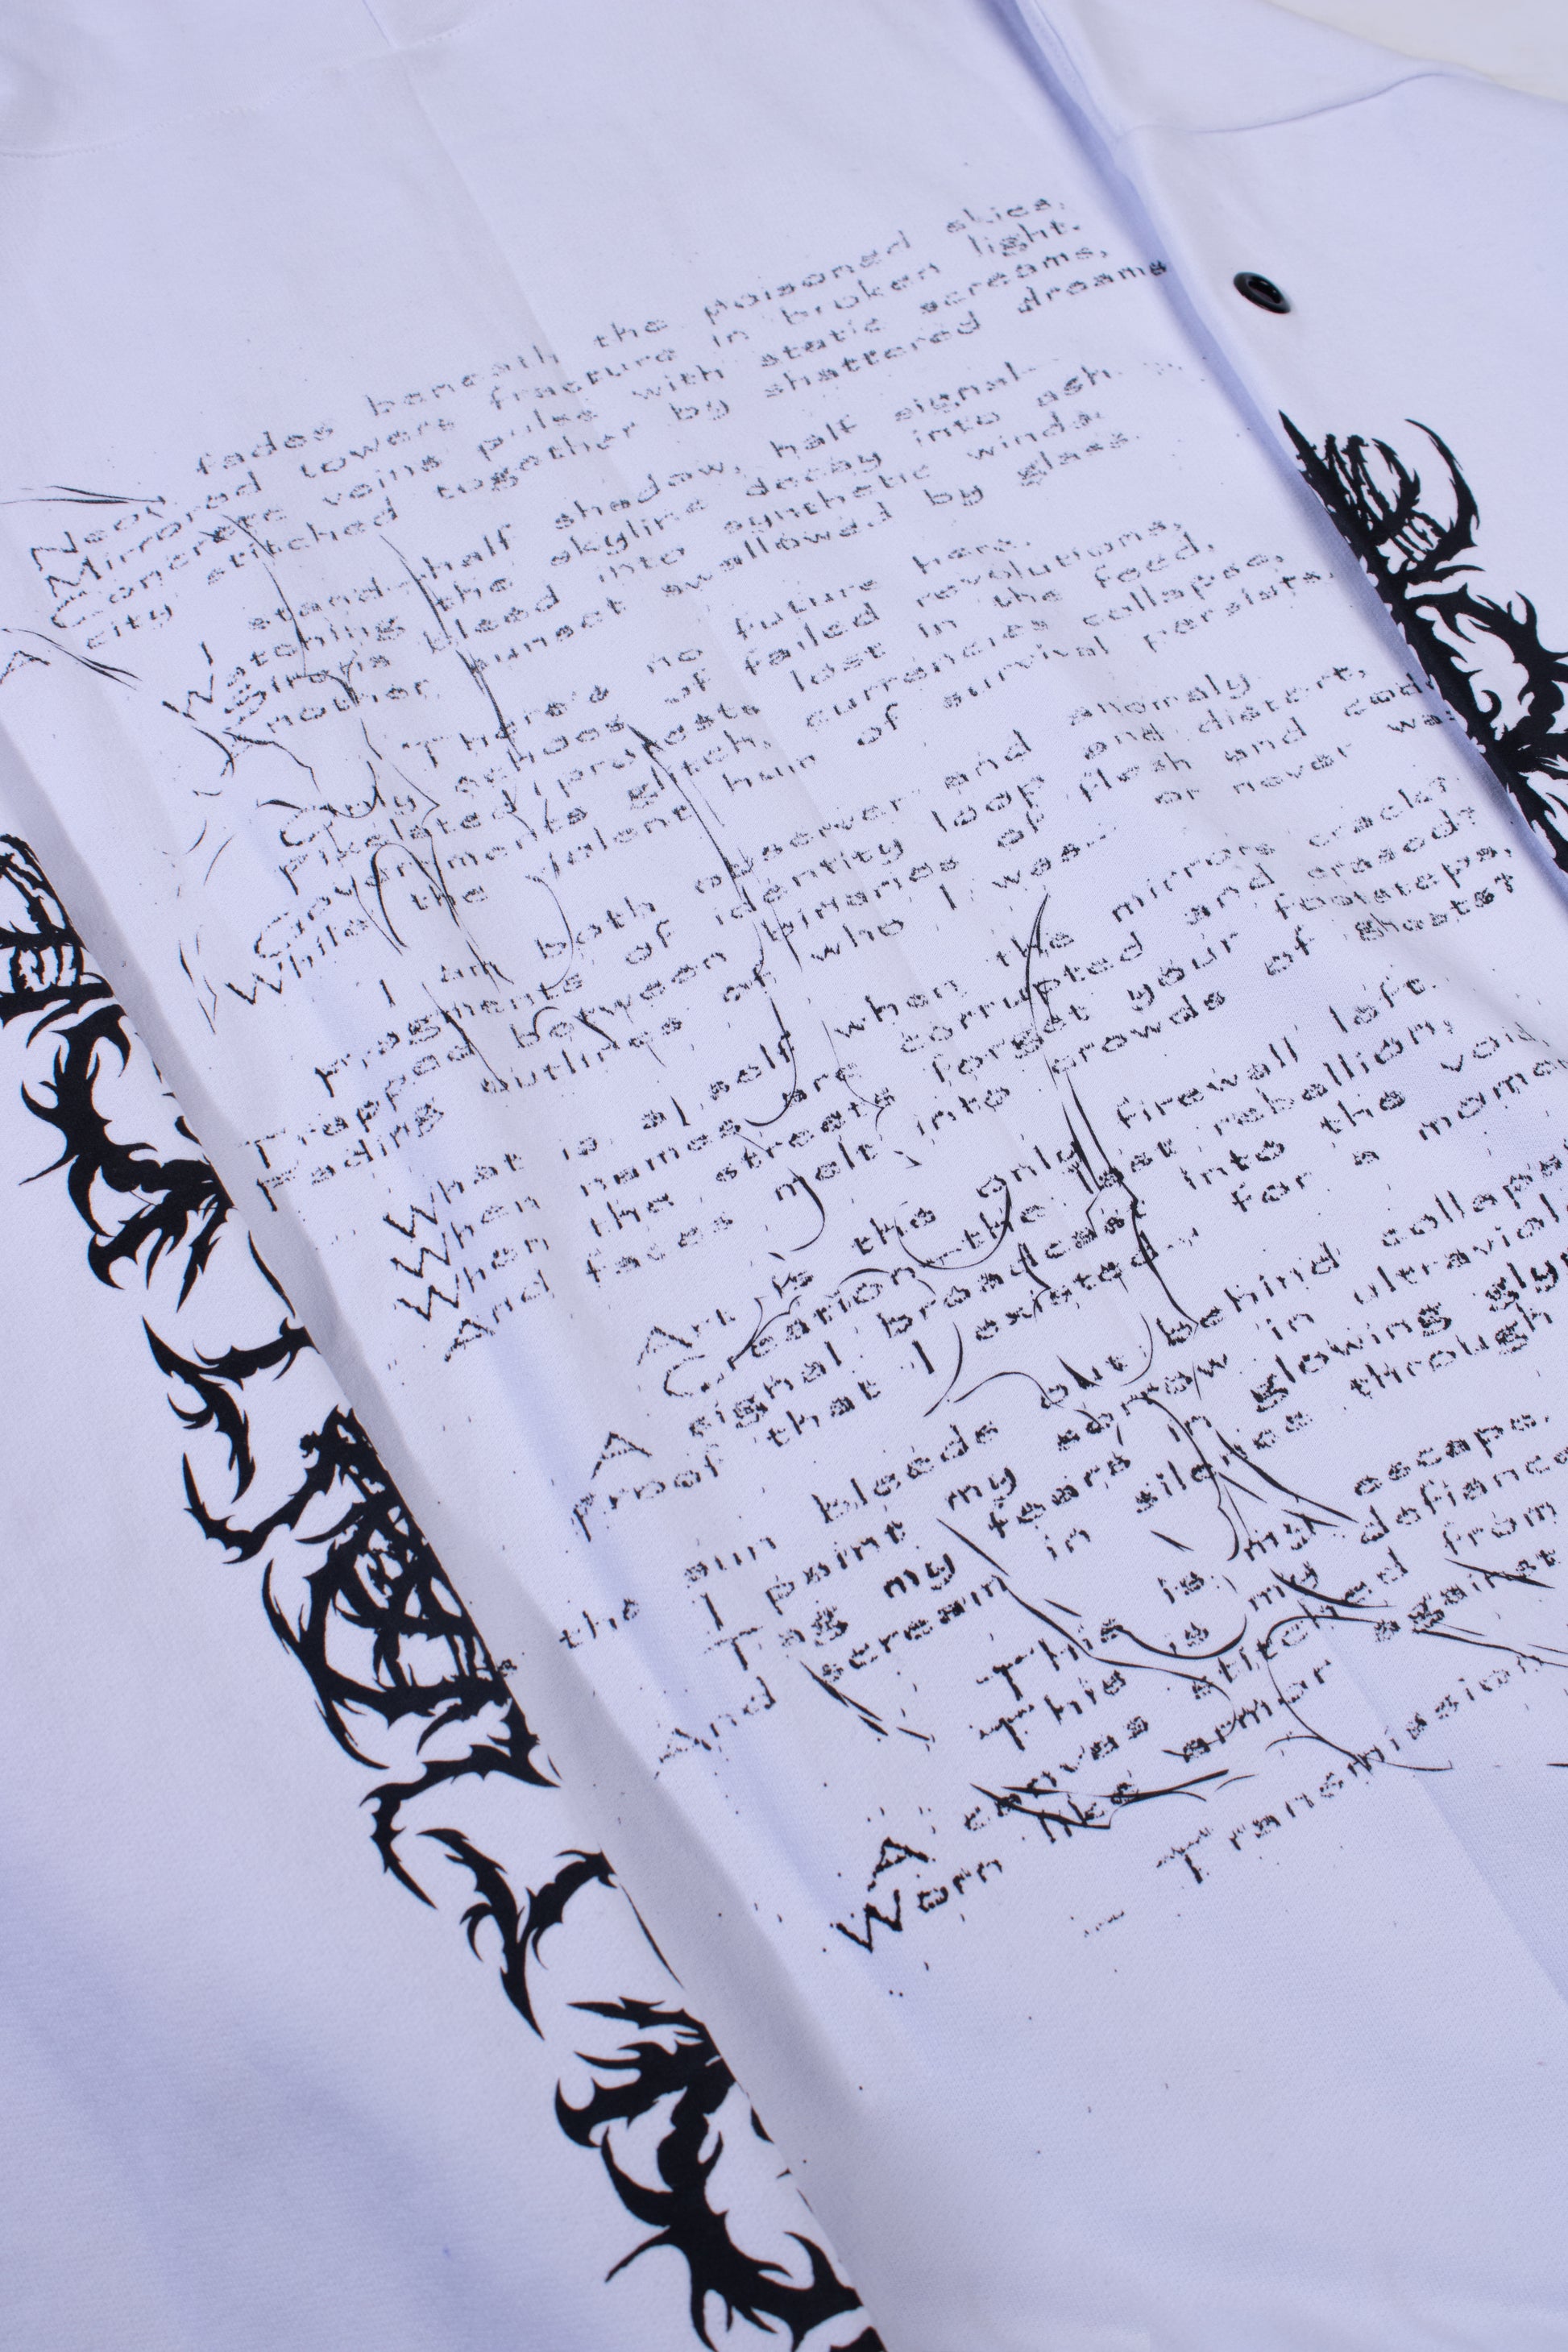 Neon fades beneath the poisoned skies,
Mirrored towers fracture in broken light.
Concrete veins pulse with static screams,
A city stitched together by shattered dreams
I stand—half shadow, half signal—
Watching the skyline decay into ash
bleed into synthetic winds,
Another sunset swallowed by glass.
There's no future here.
Only echoes of failed revolutions,
Pixelated protests lost in the feed,
Governments glitch, currencies collapse,
While the violent hum of survival persists.
I am both observer and anomaly.
Fragments of identity loop and distort,
Trapped between binaries of flesh and code
Fading outlines of who I was... or never was
What is a self when the mirrors crack?
When names are corrupted and erased?
When the streets forget your footsteps,
And faces melt into crowds of ghosts?
Art is the only firewall left.
Creation—the last rebellion,
A signal broadcast into the void,
Proof that I existed... for a mome
the sun bleeds out behind collaps
I paint my sorrow in ultraviol
Tag my fears in glowing gly
And scream in silence through
This is my escape,
This is my defiance
A canvas stitched from
Worn like armor against
Transmission